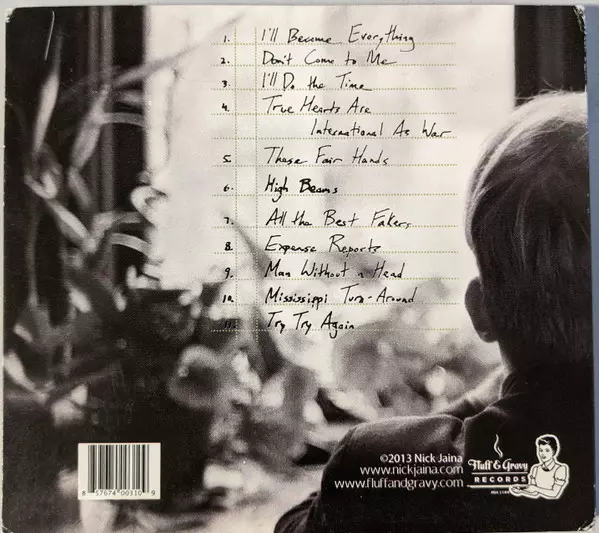 1. I'll Become Everything
2. Don't Come to Me
3. I'll Do the Time
4. True Hearts Are
International As War
5. These Fair Hands
6. High Beams
7. All the Best Fakers
8. Expense Reports
9. Man Without a Head
10. Mississippi Turn-Around
11. Try Try Again
©2013 Nick Jaina
www.nickjaina.com
www.fluffandgravy.com
Fluff & Gravy
RECORDS
8 57674 00310 9